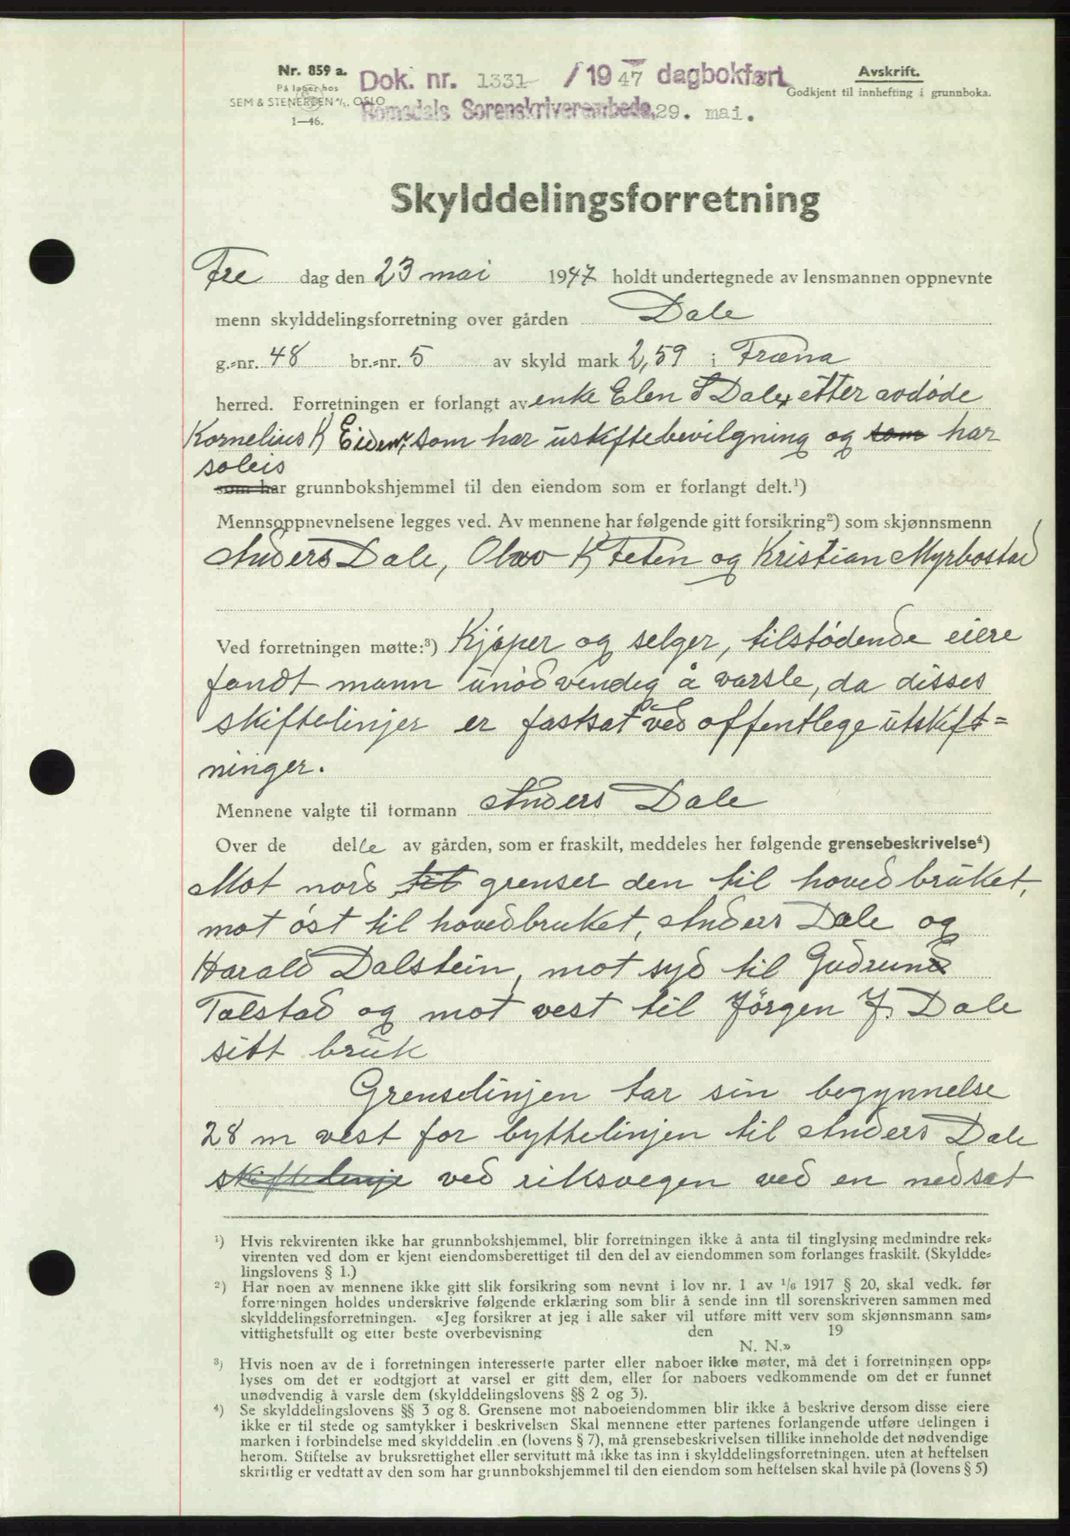 Nr. 859 a.
På lager hos
SEM & STENERSEN A/S, OSLO
1—46.
Dok. nr. 1331 /1947 dagbokført
Romsdals Sorenskriverembede, 29. mai.
Avskrift.
Godkjent til innhefting i grunnboka.
Skylddelingsforretning
Fre dag den 23 mai 1947 holdt undertegnede av lensmannen oppnevnte
menn skylddelingsforretning over gården Dale
g.-nr. 48 br.-nr. 5 av skyld mark 2,59 i Fræna
herred. Forretningen er forlangt av enke Elen S Dale, etter avdøde
Kornelius K Eiden, som har uskiftebevilgning og som har
soleis
som har grunnbokshjemmel til den eiendom som er forlangt delt.¹)
Mennsoppnevnelsene legges ved. Av mennene har følgende gitt forsikring²) som skjønnsmenn
Anders Dale, Olav K Teten og Kristian Myrbostad
Ved forretningen møtte:³) Kjøper og selger, tilstødende eiere
fandt mann unødvendig å varsle, da disses
skiftelinjer er fastsat ved offentlege utskift=
ninger.
Mennene valgte til formann Anders Dale
Over de delle av gården, som er fraskilt, meddeles her følgende grensebeskrivelse⁴)
Mot nord til grenser den til hovedbruket,
mot øst til hovedbruket, Anders Dale og
Harald Dalstein, mot syd til Gudrund
Talstad og mot vest til Jørgen J. Dale
sitt bruk
Grenselinjen tar sin begynnelse
28 m vest for byttelinjen til Anders Dale
skiftelinje ved riksvegen ved en nedsat
¹) Hvis rekvirenten ikke har grunnbokshjemmel, blir forretningen ikke å anta til tinglysing medmindre rek-
virenten ved dom er kjent eiendomsberettiget til den del av eiendommen som forlanges fraskilt. (Skyldde-
lingslovens § 1.)
²) Har noen av mennene ikke gitt slik forsikring som nevnt i lov nr. 1 av ¹/₆ 1917 § 20, skal vedk. før
forretningen holdes underskrive følgende erklæring som blir å sende inn til sorenskriveren sammen med
skylddelingsforretningen. «Jeg forsikrer at jeg i alle saker vil utføre mitt verv som skjønnsmann sam-
vittighetsfullt og etter beste overbevisning den 19
N. N.»
³) Hvis noen av de i forretningen interesserte parter eller naboer ikke møter, må det i forretningen opp-
lyses om det er godtgjort at varsel er gitt dem, eller for naboers vedkommende om det er funnet
unødvendig å varsle dem (skylddelingslovens §§ 2 og 3).
⁴) Se skylddelingslovens §§ 3 og 8. Grensene mot naboeiendommen blir ikke å beskrive dersom disse eiere
ikke er til stede og samtykker i beskrivelsen Skal mennene etter partenes forlangende utføre delingen i
marken i forbindelse med skylddelin en (lovens § 7), må grensebeskrivelsen tillike inneholde det nødvendige
herom. Stiftelse av bruksrettighet eller servitutt må ikke tas inn i skylddelingsforretningen, uten at heftelsen
skriftlig er vedtatt av den som har grunnbokshjemmel til den eiendom som heftelsen skal hvile på (lovens § 5)